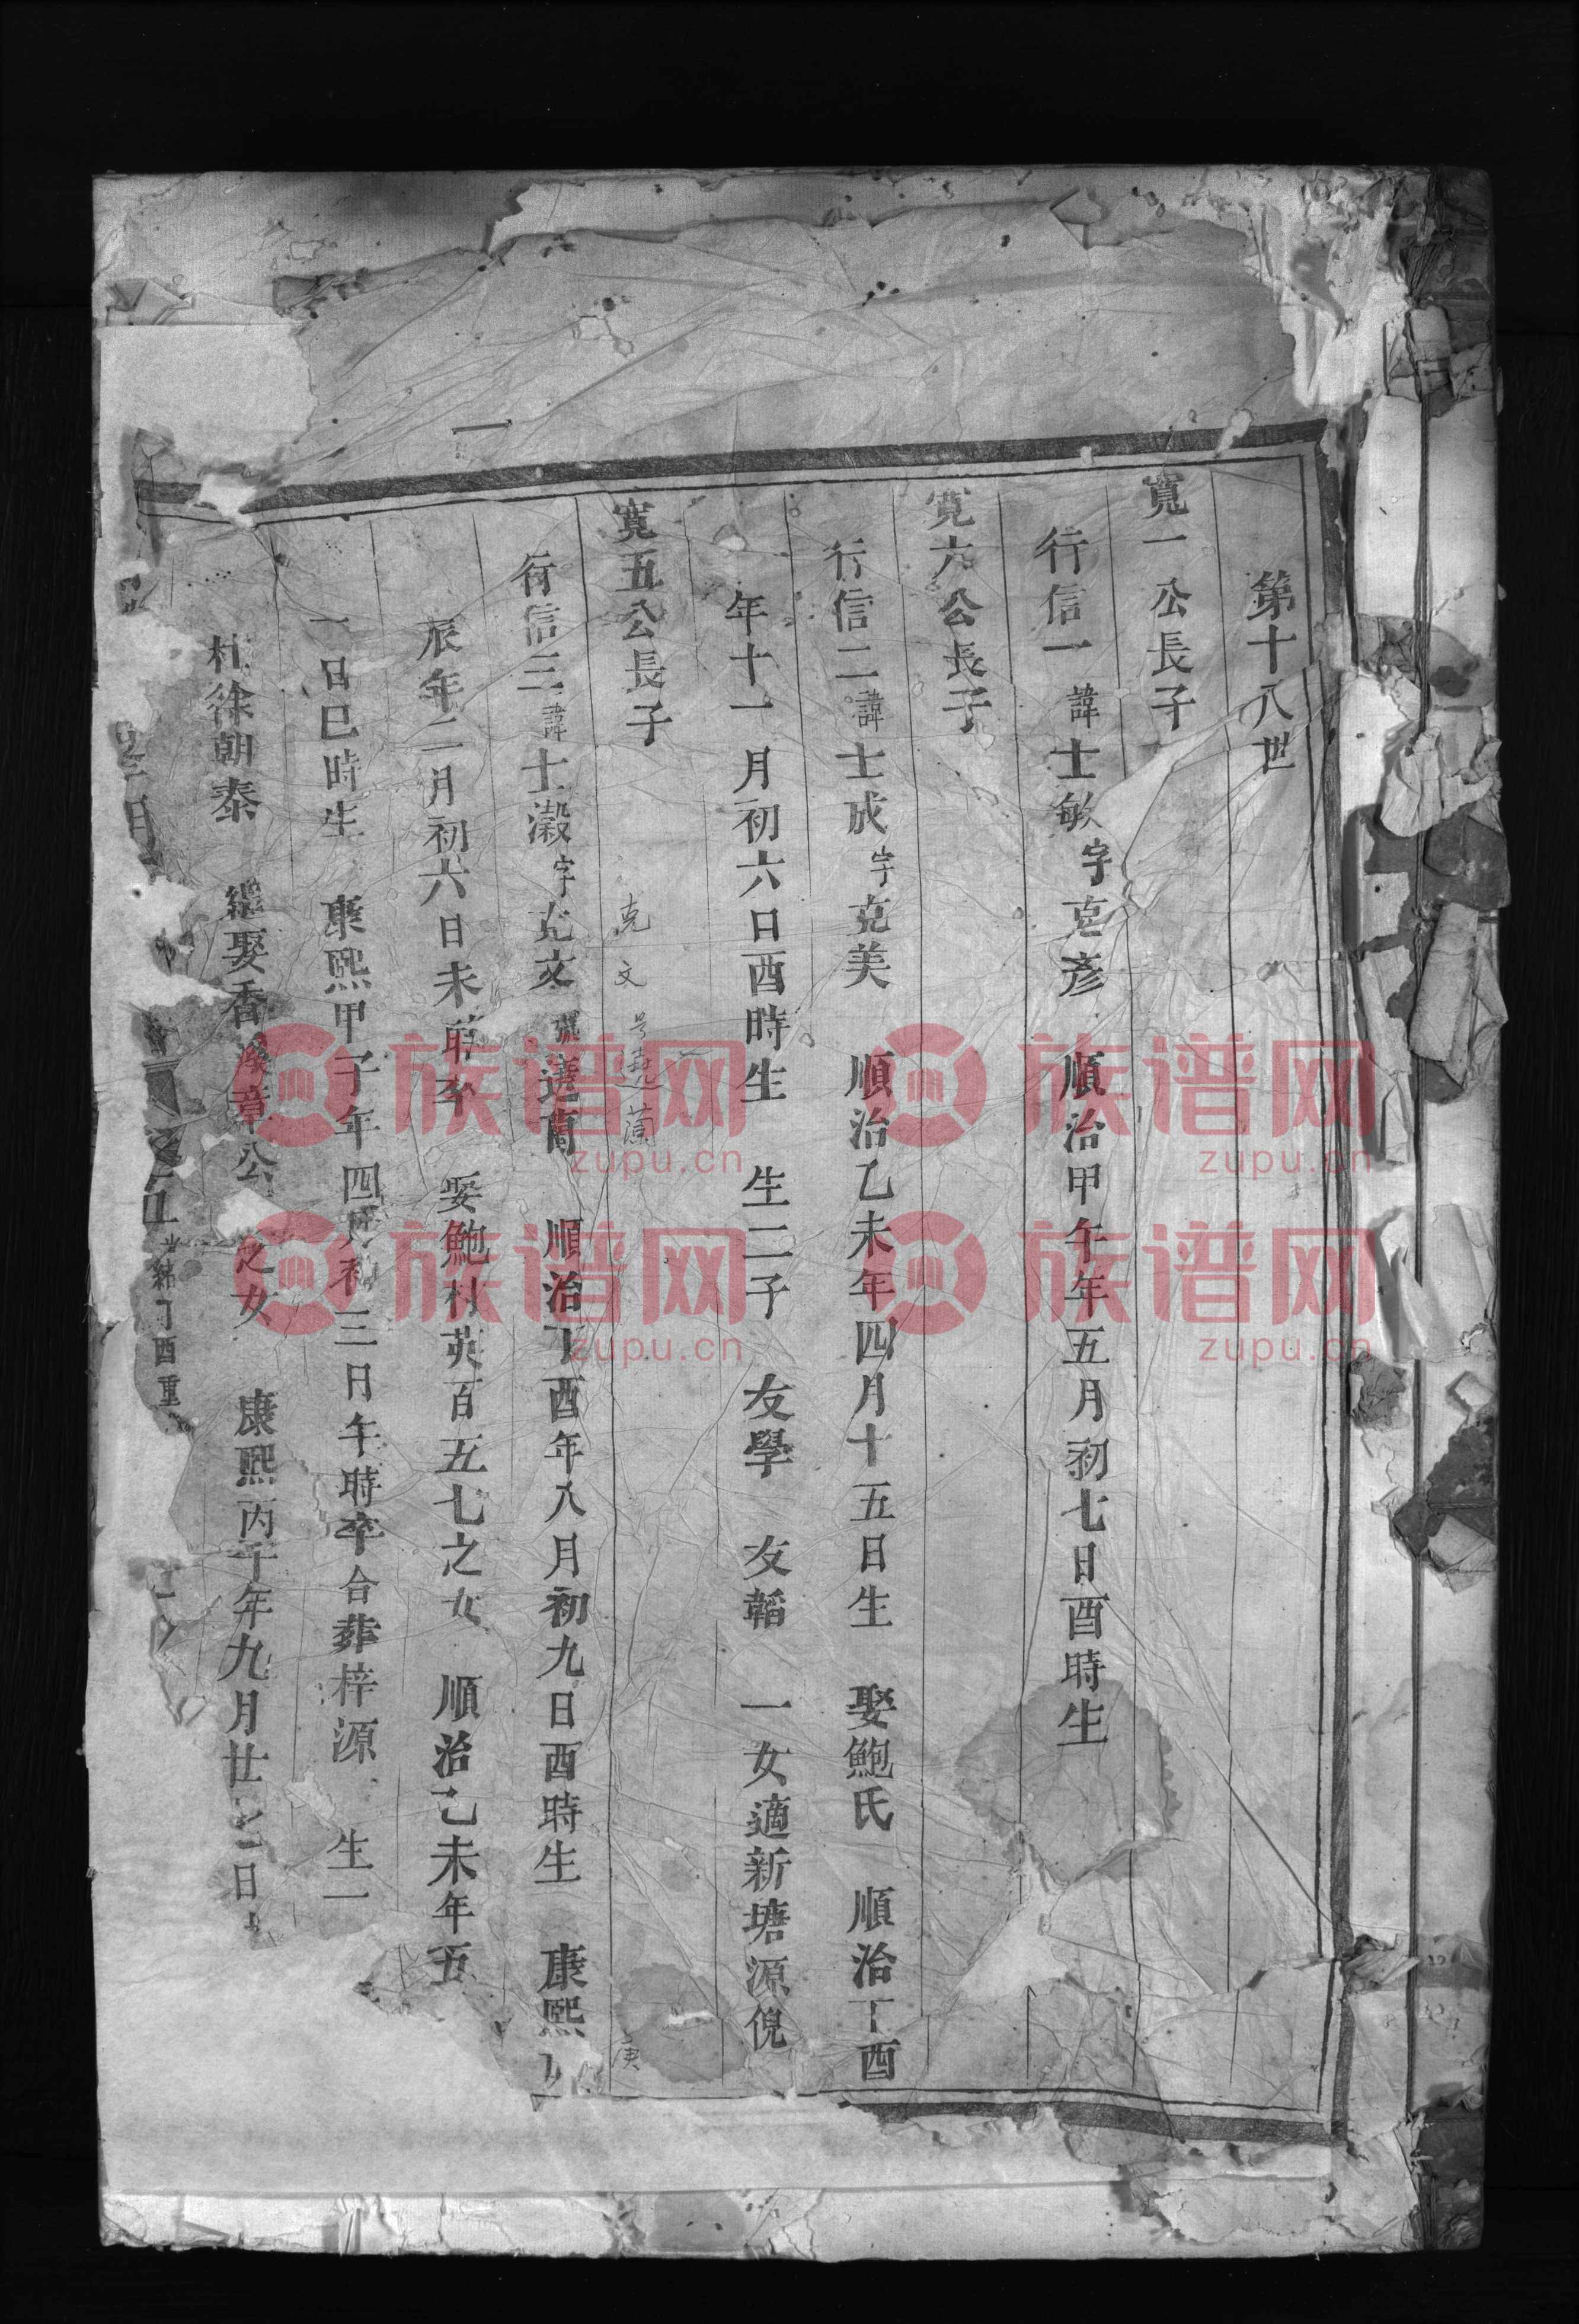 第十八世
寬一公長子
行信一諱士敏字克彥 順治甲午年五月初七日酉時生
寬六公長子
行信二諱士成字克美 順治乙未年四月十五日生 娶鮑氏 順治丁酉
年十一月初六日酉時生 生二子 友學 友韜 一女適新塘源倪
寬五公長子 克文 号遶蘭 庚
行信三諱士瀔字克文 號遶蘭 順治丁酉年八月初九日酉時生 康熙
辰年二月初六日未時卒 娶鮑村英百五七之女 順治乙未年五
一日巳時生 康熙甲子年四月初三日午時卒合葬梓源 生一
杜徐朝泰 繼娶香溪章公 之女 康熙丙午年九月廿 日
丁酉重
族谱网
zupu.cn
族谱网
zupu.cn
族谱网
zupu.cn
族谱网
zupu.cn